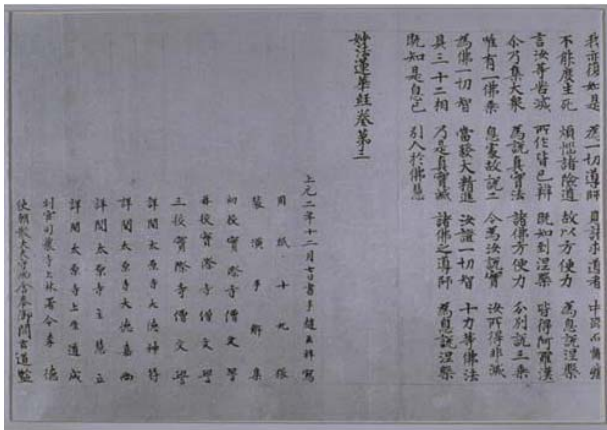 我亦復如是 為一切導師 見諸求道者 中路而懈廢
不能度生死 煩惱諸險道 故以方便力 為息說涅槃
言汝等苦滅 所作皆已辦 既知到涅槃 皆得阿羅漢
尒乃集大衆 為說真實法 諸佛方便力 分別說三乘
唯有一佛乘 息處故說二 今為汝說實 汝所得非滅
為佛一切智 當發大精進 汝證一切智 十力等佛法
具三十二相 乃是真實滅 諸佛之導師 為息說涅槃
既知是息已 引入於佛慧
妙法蓮華經卷第三
上元二年十二月七日書手趙玉祥寫
用紙十九張
裝潢手解集
初校寶際寺僧文
再校寶際寺僧文
三校寶際寺僧文
詳閱太原寺大德神符
詳閱太原寺大德嘉尚
詳閱太原寺主慧立
詳閱太原寺上座道成
判官司農寺上林署令李德
使朝散大夫守尚舍奉御閻玄道監